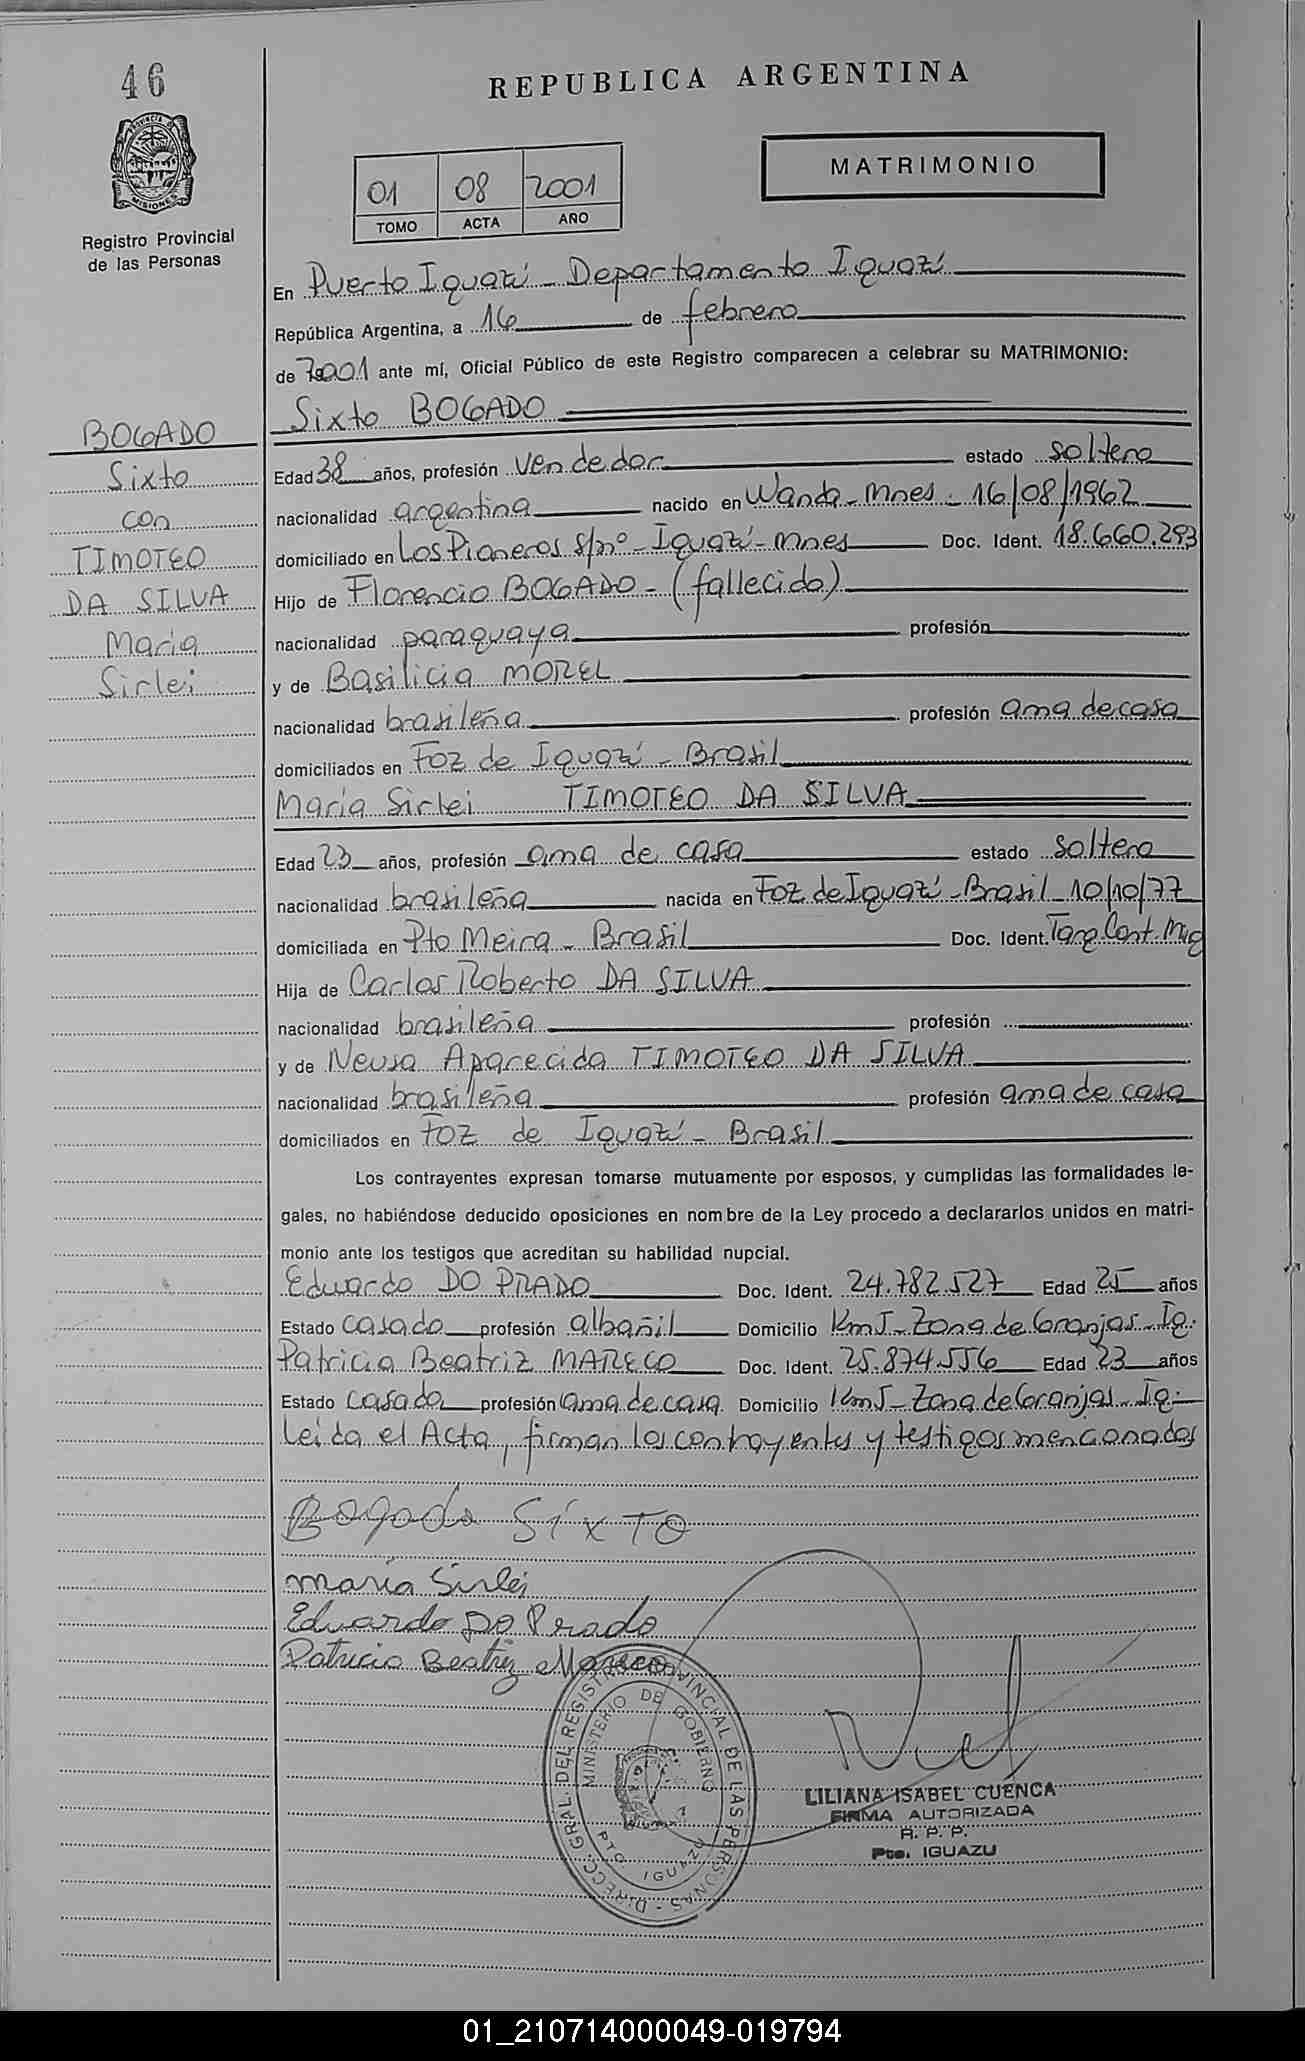 46
REPUBLICA ARGENTINA
PROVINCIA DE
MISIONES
Registro Provincial
de las Personas
01 08 2001
TOMO ACTA AÑO
MATRIMONIO
En Puerto Iguazú - Departamento Iguazú
República Argentina, a 16 de febrero
de 2001 ante mí, Oficial Público de este Registro comparecen a celebrar su MATRIMONIO:
Sixto BOGADO
BOGADO
Sixto
con
TIMOTEO
DA SILVA
Maria
Sirlei
Edad 38 años, profesión vendedor estado soltero
nacionalidad argentina nacido en Wanda - Mnes - 16/08/1962
domiciliado en Los Pioneros s/nº - Iguazú - Mnes Doc. Ident. 18.660.293
Hijo de Florencio BOGADO - (fallecido)
nacionalidad paraguaya profesión
y de Basilicia MOREL
nacionalidad brasileña profesión ama de casa
domiciliados en Foz de Iguazú - Brasil
Maria Sirlei TIMOTEO DA SILVA
Edad 23 años, profesión ama de casa estado soltera
nacionalidad brasileña nacida en Foz de Iguazú - Brasil 10/10/77
domiciliada en Pto Meira - Brasil Doc. Ident. Tarj. Cont. Mig
Hija de Carlos Roberto DA SILVA
nacionalidad brasileña profesión
y de Neusa Aparecida TIMOTEO DA SILVA
nacionalidad brasileña profesión ama de casa
domiciliados en Foz de Iguazú - Brasil
Los contrayentes expresan tomarse mutuamente por esposos, y cumplidas las formalidades le-
gales, no habiéndose deducido oposiciones en nombre de la Ley procedo a declararlos unidos en matri-
monio ante los testigos que acreditan su habilidad nupcial.
Eduardo DO PRADO Doc. Ident. 24.782.527 Edad 25 años
Estado casado profesión albañil Domicilio Km 5 - Zona de Granjas - Ig.
Patricia Beatriz MARECO Doc. Ident. 25.874.556 Edad 23 años
Estado casada profesión ama de casa Domicilio Km 5 - Zona de Granjas - Ig.
Leída el Acta, firman los contrayentes y testigos mencionados
Bogado Sixto
maria Sirlei
Eduardo Do Prado
Patricia Beatriz Mareco
DIRECC. GRAL. DEL REGISTRO PROVINCIAL DE LAS PERSONAS -
MINISTERIO DE GOBIERNO
PTO. IGUAZU
LILIANA ISABEL CUENCA
FIRMA AUTORIZADA
R. P. P.
Pto. IGUAZU
01_210714000049-019794